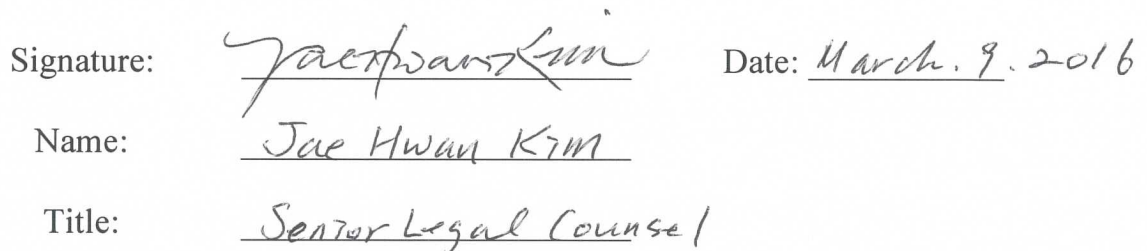 Signature: Jae Hwan Kim Date: March. 9. 2016
Name: Jae Hwan Kim
Title: Senior Legal Counsel